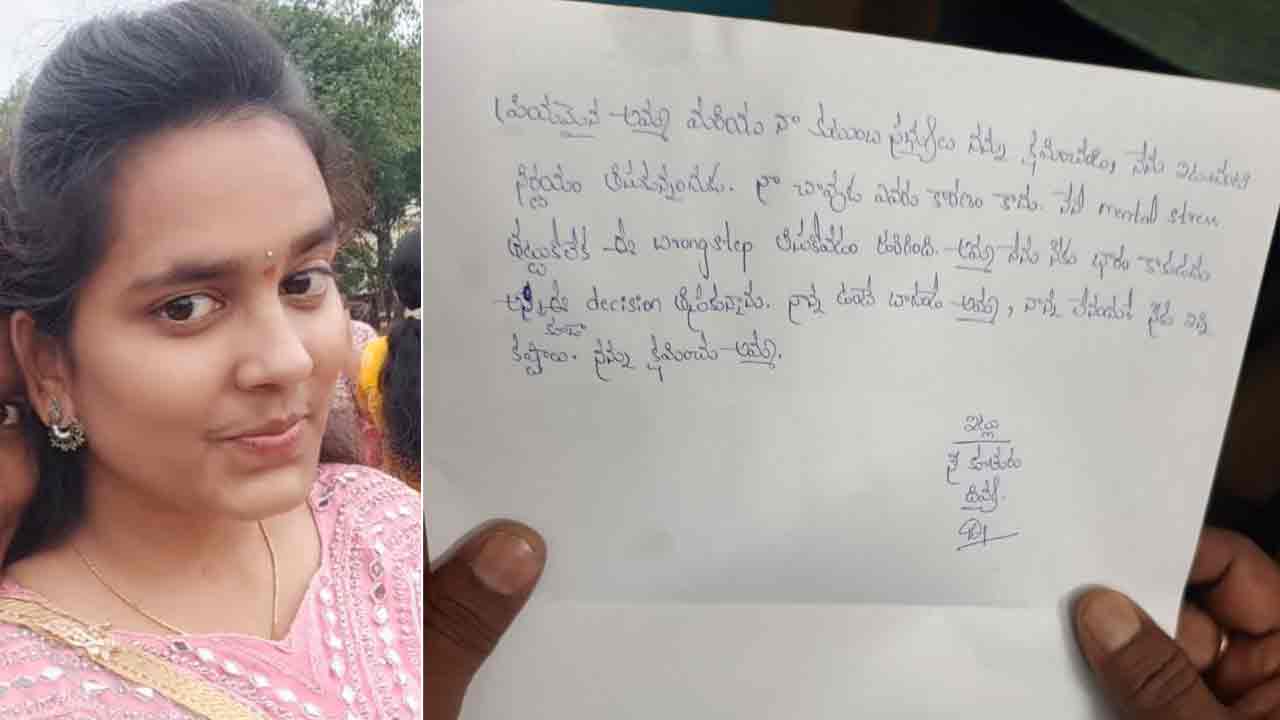 ప్రియమైన అమ్మ మరియు నా కుటుంబ సభ్యులు నన్ను క్షమించండి, నేను ఇటువంటి
నిర్ణయం తీసుకున్నందుకు. నా చావుకు ఎవరు కారణం కాదు. నేనే mental stress
తట్టుకోలేక ఈ wrong step తీసుకోవడం జరిగింది. అమ్మ నేను నీకు భారం కాకూడదు
అని ఈ decision తీసుకున్నాను. నాన్న ఉంటే బాగుండే అమ్మ, నాన్న లేనందుకే నీకు ఇన్ని
కష్టాలు. నన్ను కూడా క్షమించు అమ్మ.
ఇట్లు
నీ కూతురు
దివ్య.